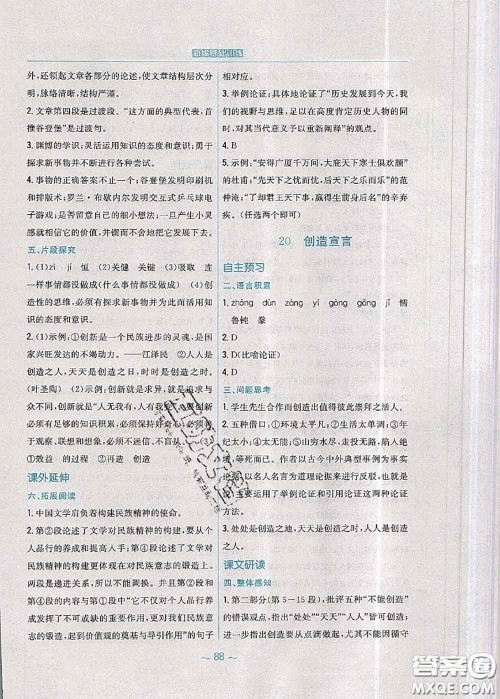 新编基础训练
外，还领起文章各部分的论述，使文章结构层次分
明，脉络清晰，具有严谨性。
2. 文章第四段是过渡段。“这方面的典型代表，首
推谷登堡”是过渡句。
3. 渊博的学识；灵活运用知识的态度和意识；勇于
探求新事物并不断进行各种尝试。
4. 事物的正确答案不止一个；谷登堡发明印刷机
和排版术；罗兰·布歇内尔发明交互式乒乓球电
子游戏；是否留意自己的细小想法；一旦产生小灵
感就相信它的价值，并锲而不舍地把它发展下去。
五、片段探究
1. (1)zī jí 恒 (2)关健 关键 (3)吸取 连
一样事情都没做成（什么事情都没做成） (4)创
造性的思维，必须有探求新事物并为此活用知识
的态度和意识。
2. (1)示例：①创新是一个民族进步的灵魂，是国
家兴旺发达的不竭动力。——江泽民 ②人人是
创造之人，天天是创造之日，时时是创造之时。
（叶圣陶） ③创新就是求异，求异就是追求与
众不同，创新就是“人无我有，人有我优”，要创新
必须有足够的知识积累，必须有创新的意识
(2)效益 的过程 ②再造 创造
课外延伸
六、拓展阅读
1. 中国文学肩负着构建民族精神的使命。
2. 第②段论述了文学对民族精神的构建，要从个
人品行的养成和提高上去要求，第④段论述了文学
对民族精神的构建更体现在对民族意志的锻造上。
两段是递进关系，所以不能调换，并且第②段与
第③段和第④段的内容与第①段“个人品行的
养成与提高，发挥了不可替代的作用，更对我们民族
意志的锻造，起到价值观的奠基与导引作用”的句子
相对应。
3. 举例论证；具体地论证了“历史发展到今天，我
们的视野与思维，足以在高度肯定历史人物的同
时，对其当代意义予以重新阐释”的观点。
4. B
5. 示例：“安得广厦千万间，大庇天下寒士俱欢颜”
的杜甫；“先天下之忧而忧，后天下之乐而乐”的范
仲淹；“了却君王天下事，赢得生前身后名”的辛弃
疾。（任选两个即可）
20 创造宣言
自主预习
二、语言积累
1. zhòng dùn zàng yì gōng gǒng jì 惰
鲁钝 豢
2. D
3. D（比喻论证）
4. D
三、问题思考
1. 学生先生合作而创造出值得彼此崇拜之活人。
2. 文章主要批驳了：①环境太平凡，不能创造；②生
活太单调，不能创造；③年纪太小，不能创造；④我
太无能，不能创造；⑤山穷水尽，走投无路，陷入绝
境，等死而已，不能创造。作者以古今中外典型事
例为依据，以名人名言为道理论据来进行反驳，主
要运用了举例论证和引用论证这两种论证
方法。
3. 处处是创造之地，天天是创造之时，人人是创造
之人。
课文研读
四、整体感知
1. 第二部分（第5—15段），批评五种“不能创造”
的错误观点，指出“处处”“天天”“人人”皆可创造。
第三部分：创造需要从点滴做起，尤其需要劳动。
~ 88 ~
答案圈
MXQE.COM